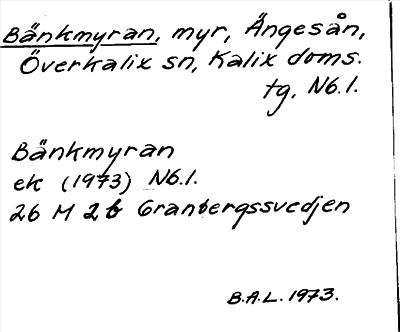 Bänkmyran, myr, Ängesån,
Överkalix sn, Kalix doms.
tg, Nb.l.
Bänkmyran
ek (1973) Nb.l.
26 M 2b Granbergssvedjen
B.A.L. 1973.